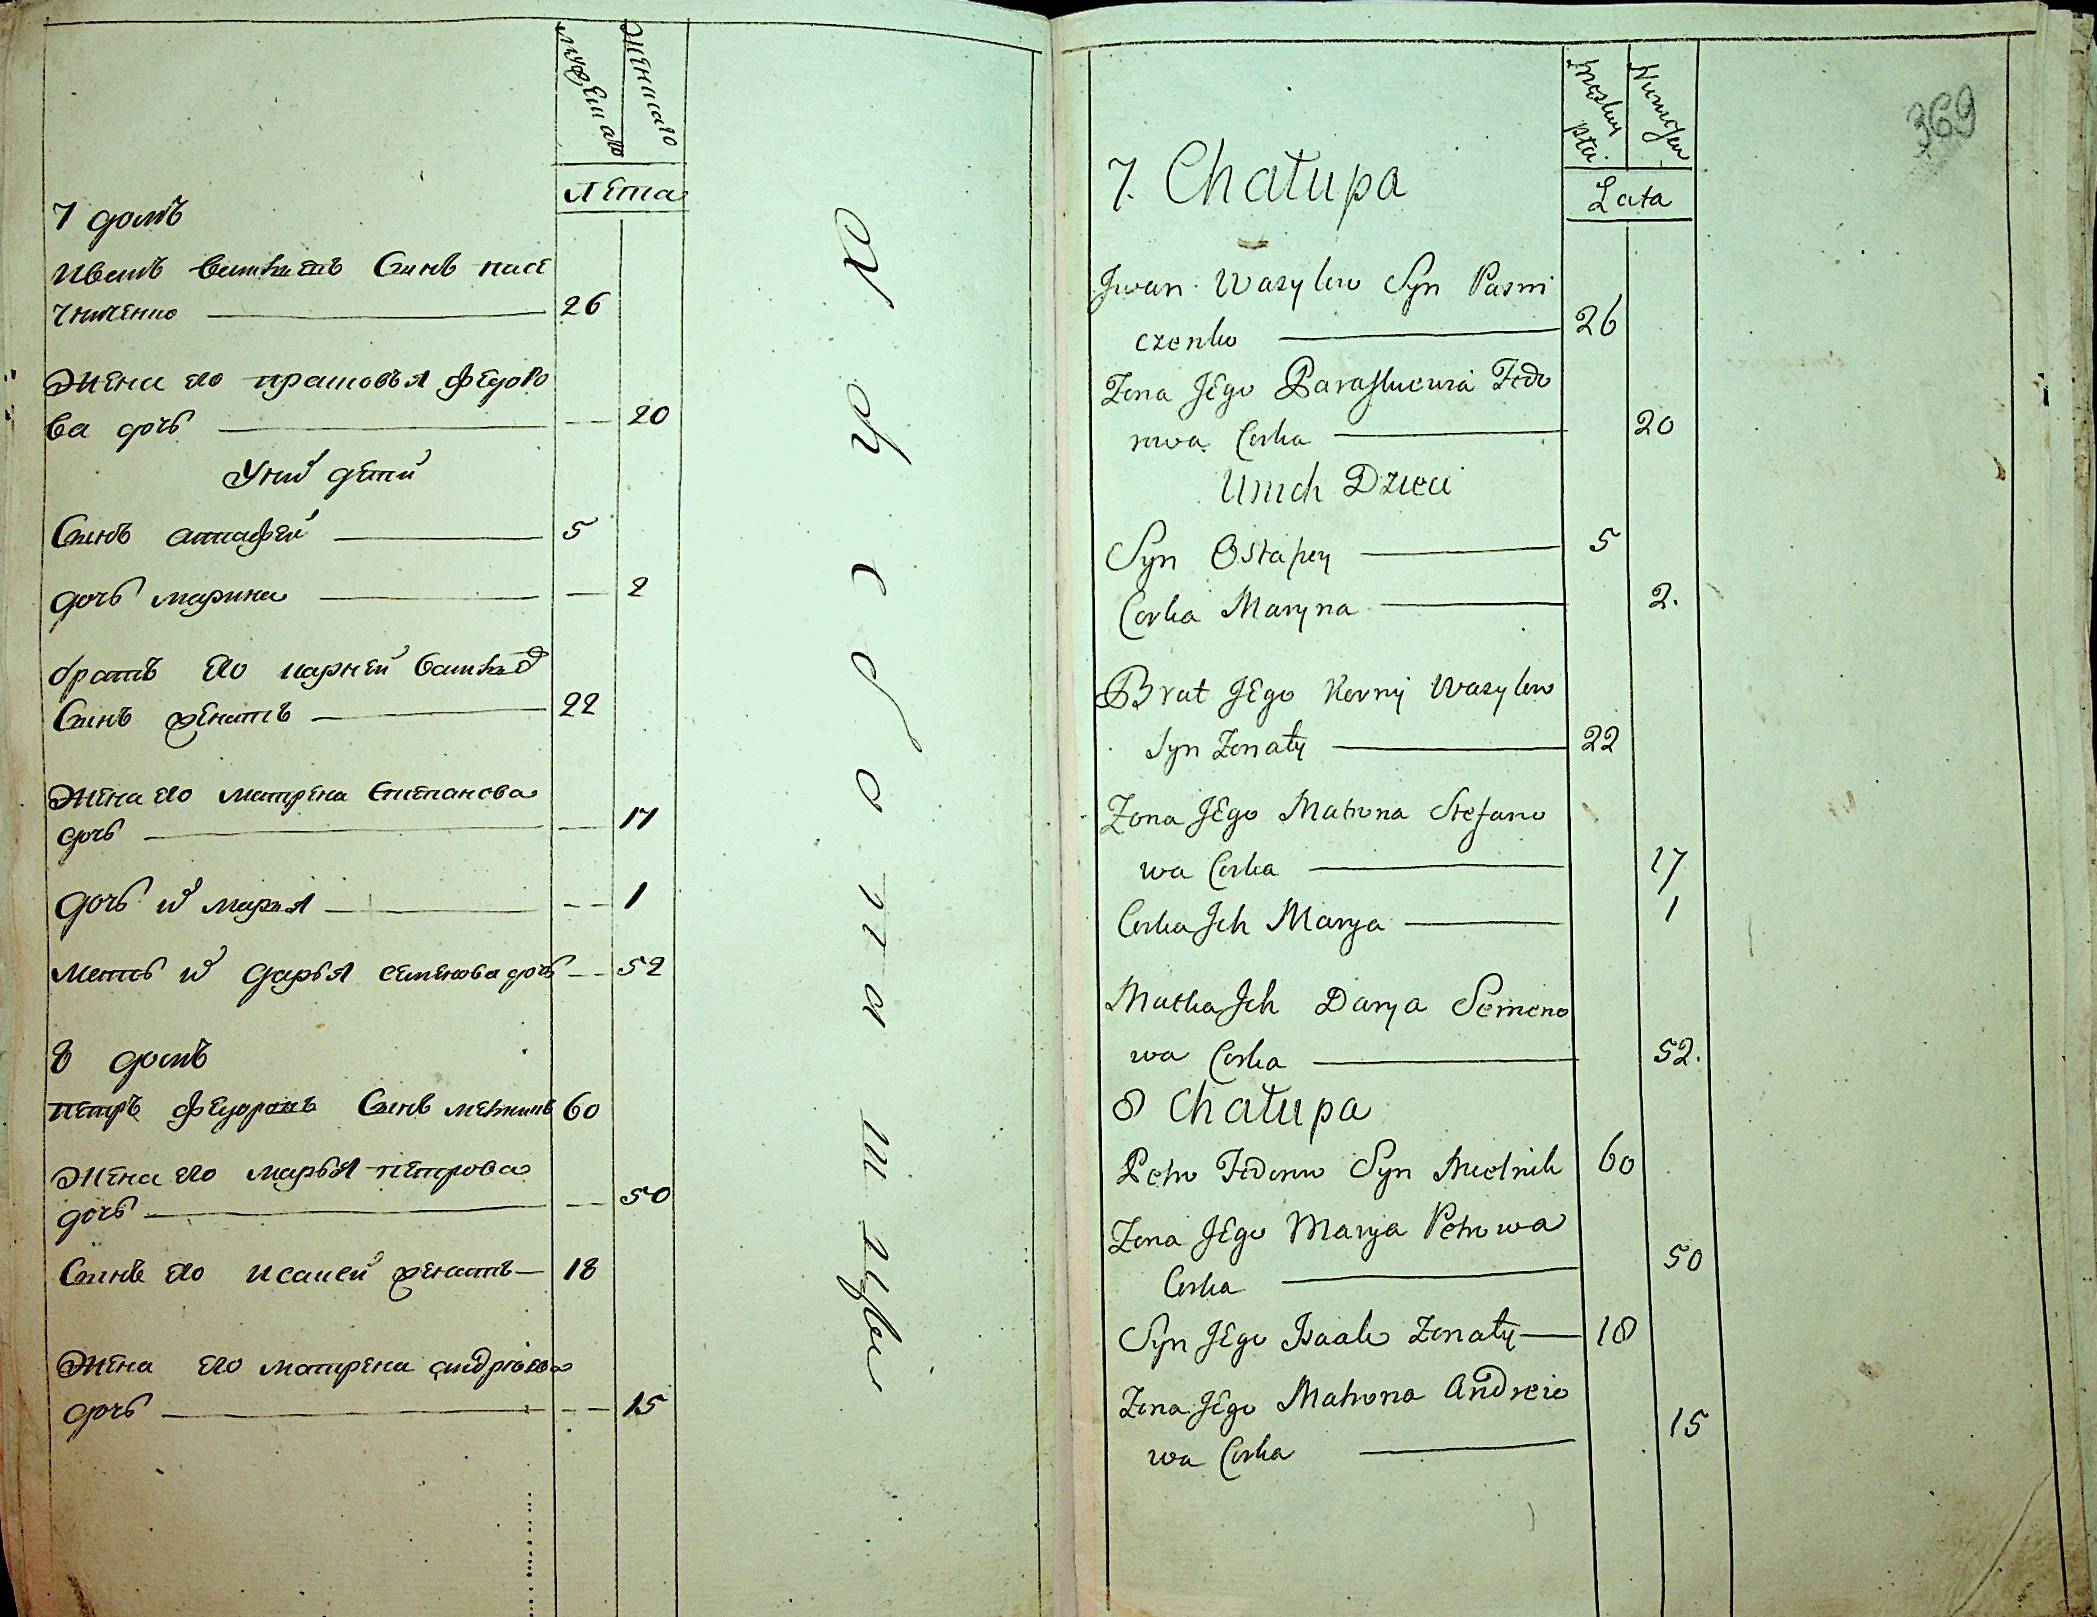 мужеска
женска
Лета
7 домъ
Иванъ василевъ Синъ пасе
чниченко 26
Жена его прасковья федоро
ва дочь 20
У них дети
Синъ астафей 5
дочь марина 2
братъ его карней василев
Синъ женатъ 22
Жена его матрена степанова
дочь 17
дочь их марья 1
Мать их дарья семенова дочь 52
8 домъ
петръ федоровъ Синъ мелникъ 60
Жена его марья петрова
дочь 50
Синъ его исакей женатъ 18
Жена его матрена андреева
дочь 15
369
Męskey
Płci
Lata
7. Chałupa
Jwan Wasylow Syn Pasni
czenko 26
Zona JEgo Paraskewia Fedo
rowa Corka 20
Unich Dzieci
Syn Ostapey 5
Corka Maryna 2.
Brat JEgo Korniy Wasylow
Syn Zonaty 22
Zona JEgo Matrona Stefano
wa Corka 17
Corka Jch Marya 1
Matka Jch Darya Semeno
wa Corka 52.
8 Chałupa
Petro Fedorow Syn Mielnik 60
Zona JEgo Marya Petrowa
Corka 50
Syn JEgo Isaak Zonaty 18
Zona JEgo Matrona Andreio
wa Corka 15